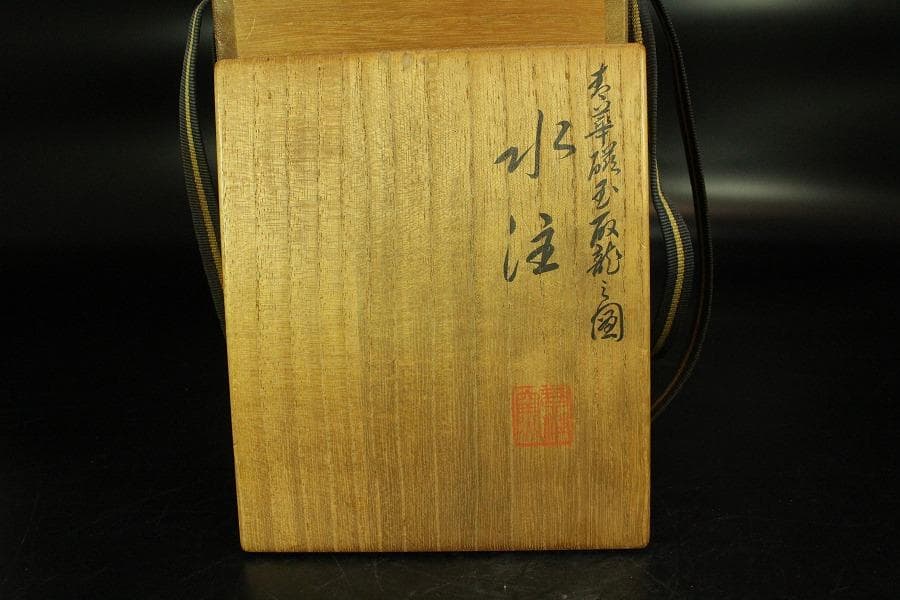 青華磁玉取龍之圖
水注